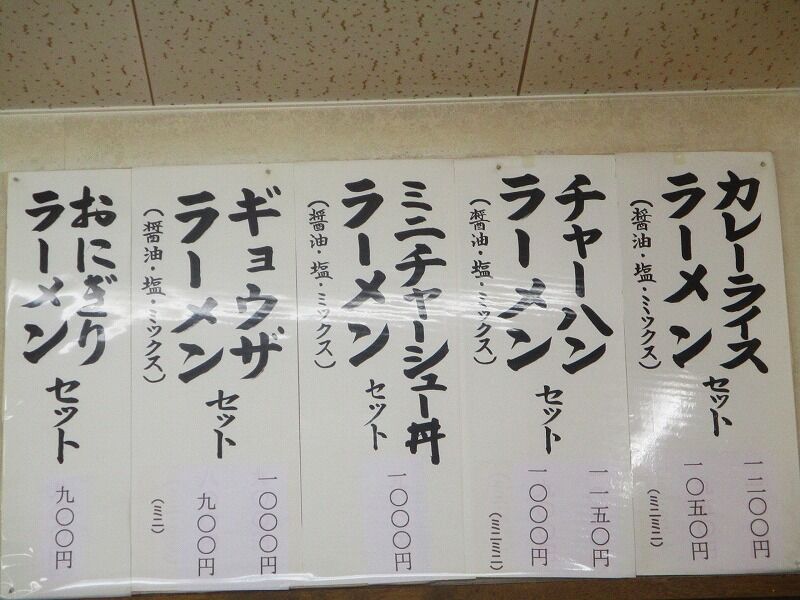 カレーライス
ラーメン
セット
(醤油・塩・ミックス)
一二〇〇円
一〇五〇円
(ミニミニ)
チャーハン
ラーメン
セット
(醤油・塩・ミックス)
一一五〇円
一〇〇〇円
(ミニミニ)
ミニチャーシュー丼
ラーメン
セット
(醤油・塩・ミックス)
一〇〇〇円
ギョウザ
ラーメン
セット
(醤油・塩・ミックス)
一〇〇〇円
九〇〇円
(ミニ)
おにぎり
ラーメン
セット
九〇〇円